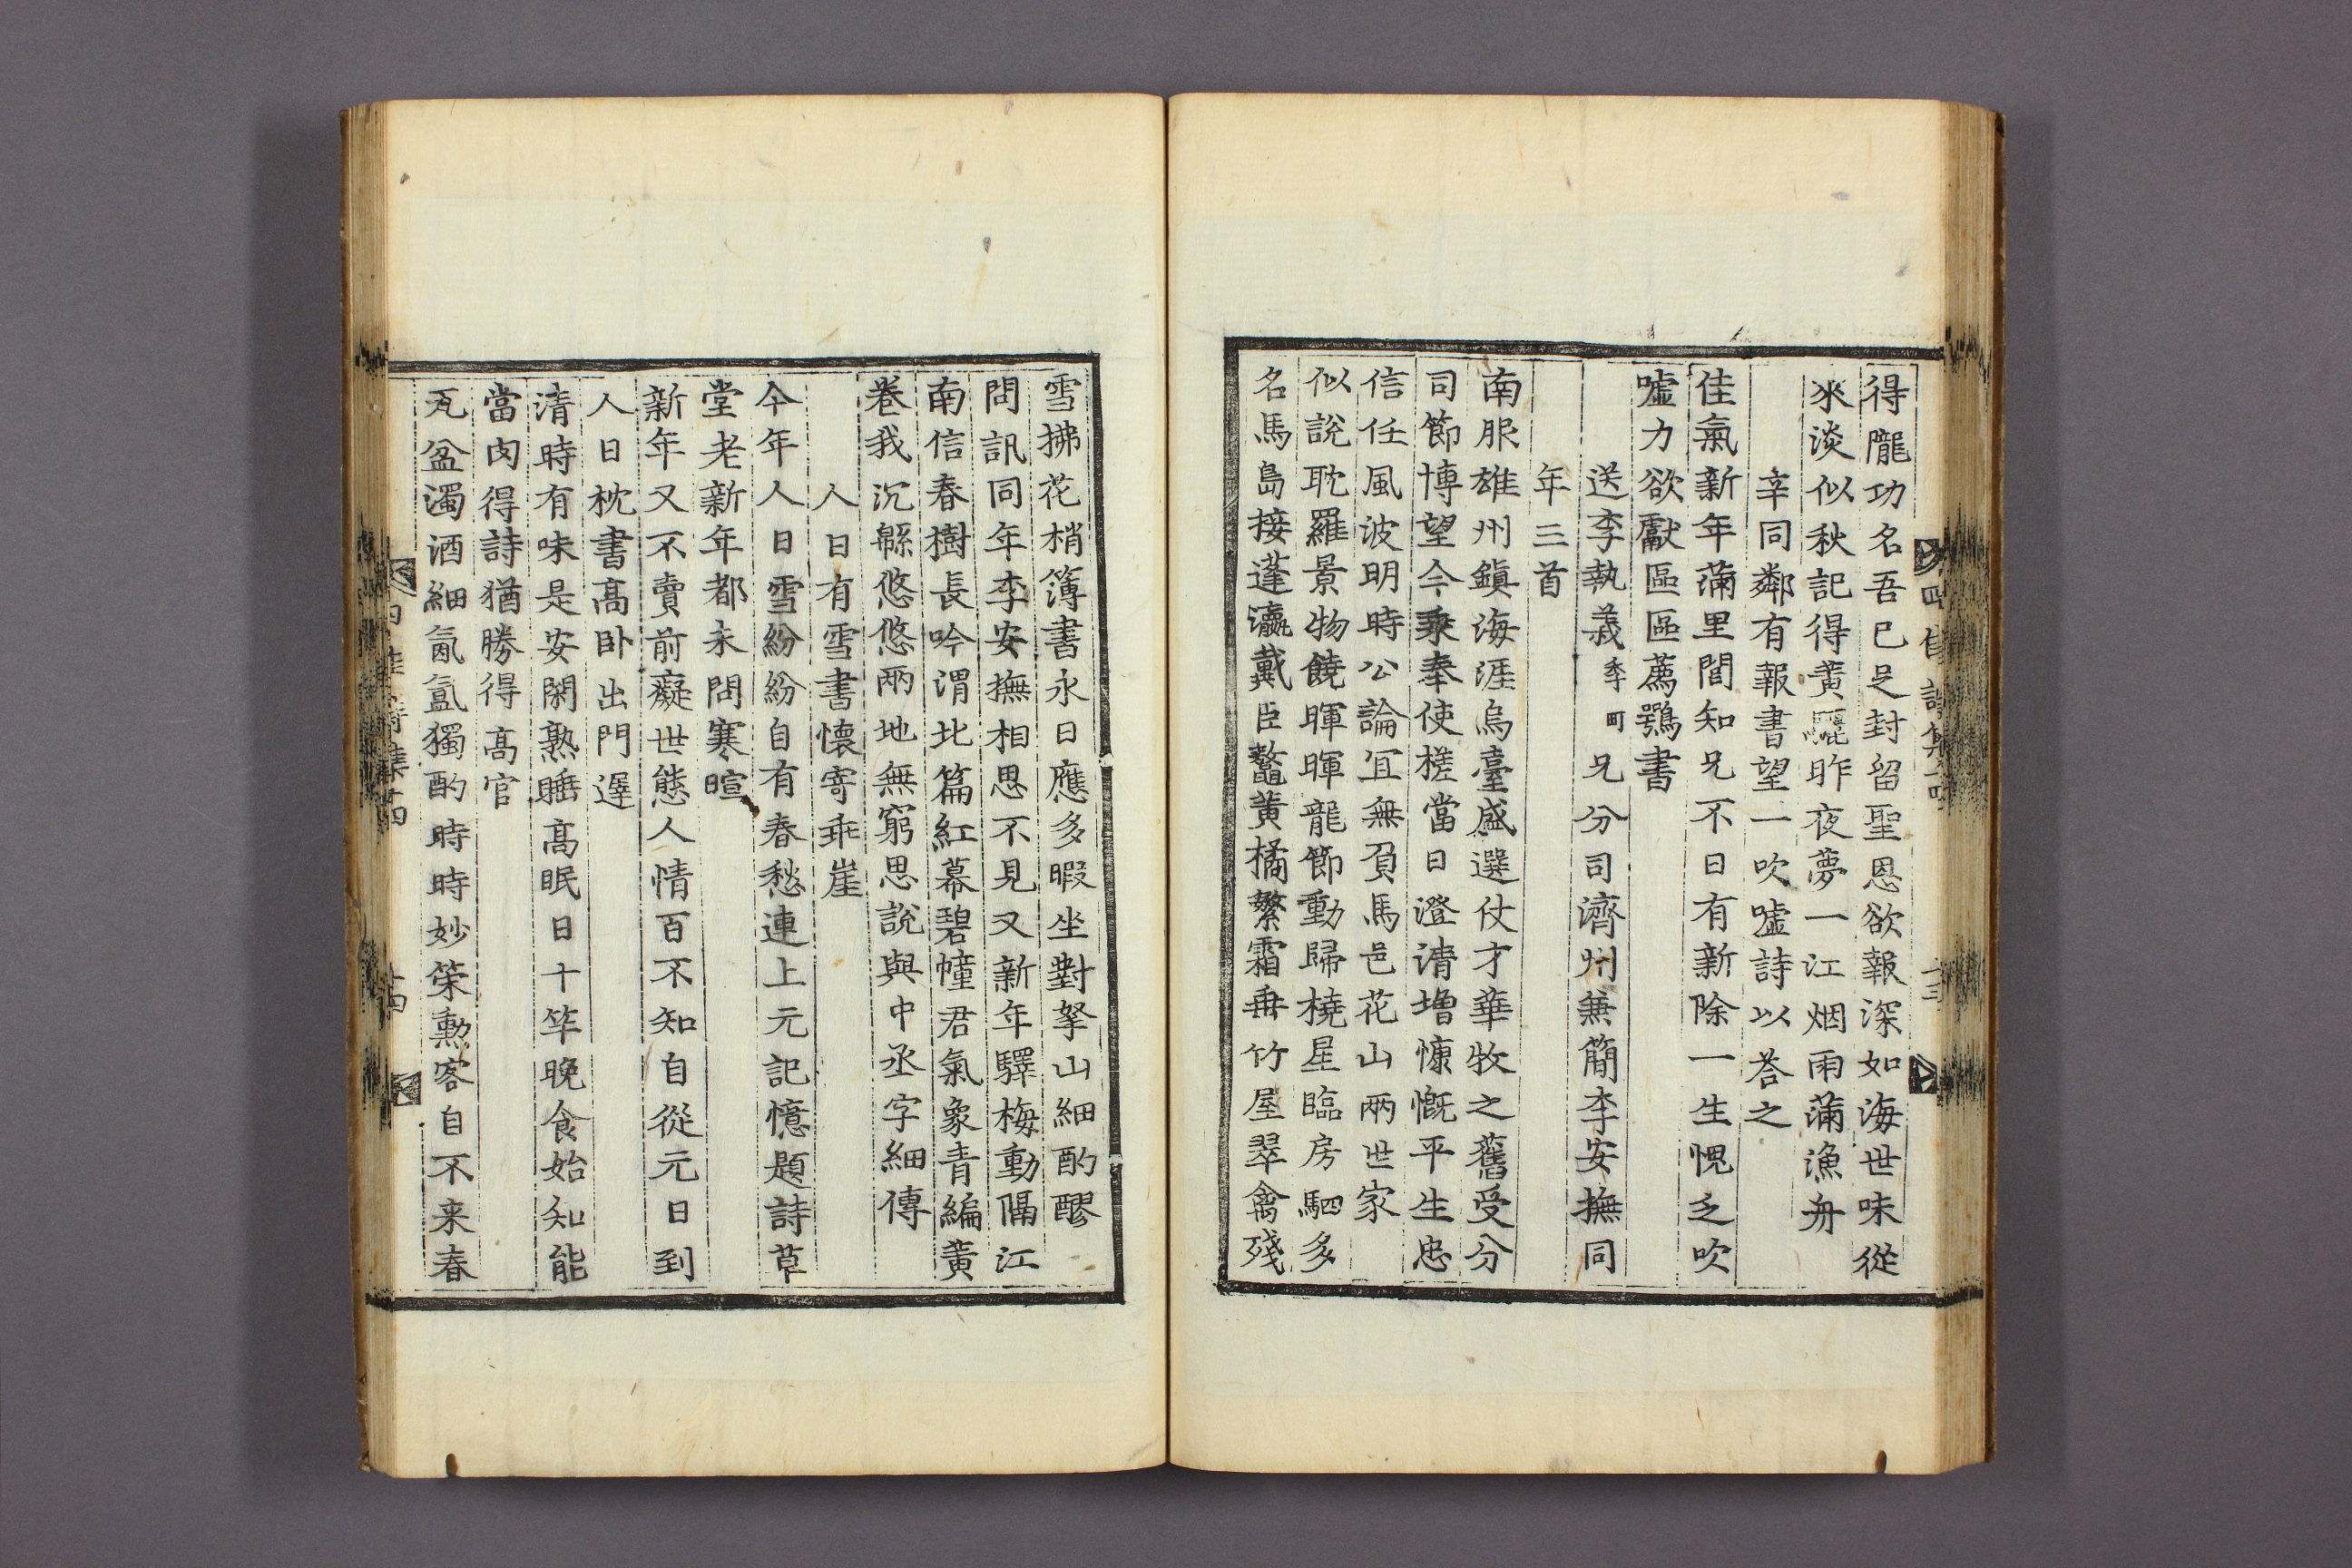 得隴功名吾已足封留聖恩欲報深如海世味從
來淡似秋記得黃驪昨夜夢一江烟雨滿漁舟
辛同鄰有報書望一吹噓詩以荅之
佳氣新年滿里閭知兄不日有新除一生愧乏吹
噓力欲獻區區薦鶚書
送李執義季町兄分司濟州兼簡李安撫同
年三首
南服雄州鎭海涯烏臺盛選仗才華牧之舊受分
司節博望今乘奉使槎當日澄淸增慷慨平生忠
信任風波明時公論宜無負馬邑花山兩世家
似說耽羅景物饒暉暉龍節動歸橈星臨房駟多
名馬島接蓬瀛戴巨鼇黃橘繁霜垂竹屋翠禽殘
雪拂花梢簿書永日應多暇坐對拏山細酌醪
問訊同年李安撫相思不見又新年驛梅動隔江
南信春樹長吟渭北篇紅幕碧幢君氣象靑編黃
卷我沉緜悠悠兩地無窮思說與中丞字細傳
人日有雪書懷寄乖崖
今年人日雪紛紛自有春愁連上元記憶題詩草
堂老新年都未問寒暄
新年又不賣前癡世態人情百不知自從元日到
人日枕書高卧出門遲
淸時有味是安閑熟睡高眠日十竿晩食始知能
當肉得詩猶勝得高官
瓦盆濁酒細氤氳獨酌時時妙策勳客自不来春
四佳詩集
十四